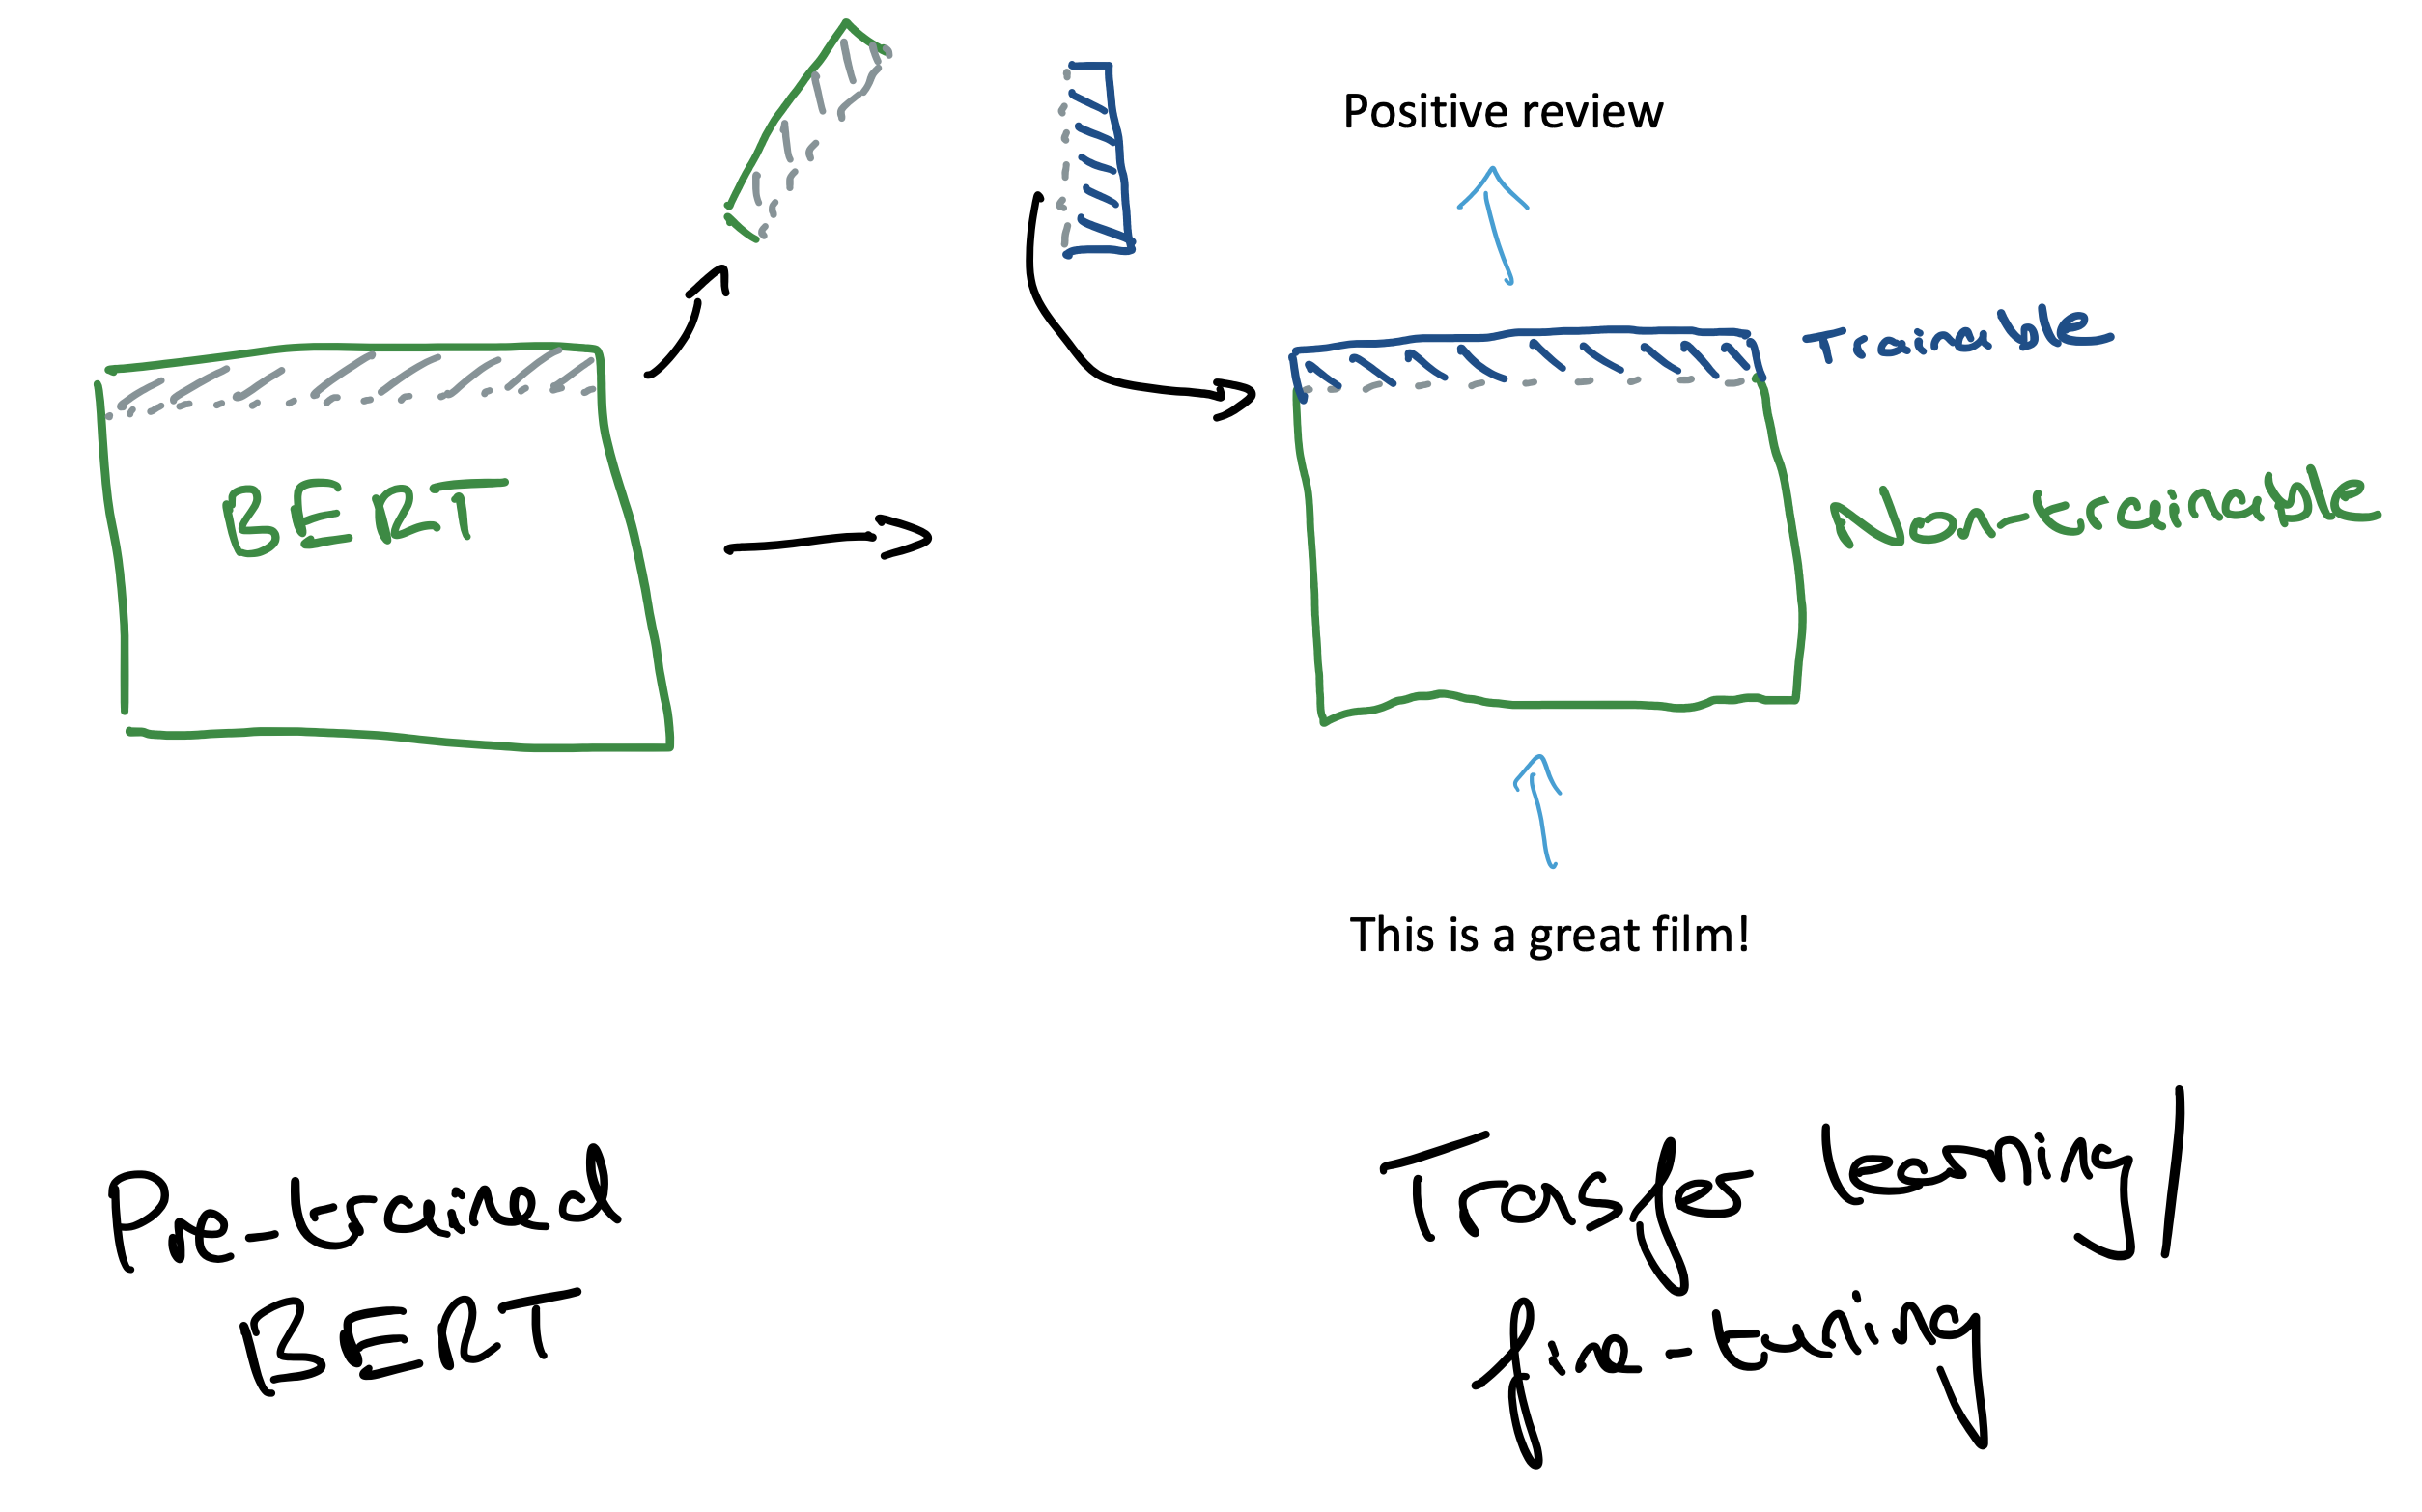 Positive review
Trainable
BERT
Non-trainable
This is a great film!
Pre-trained
BERT
Transfer learning/
fine-tuning